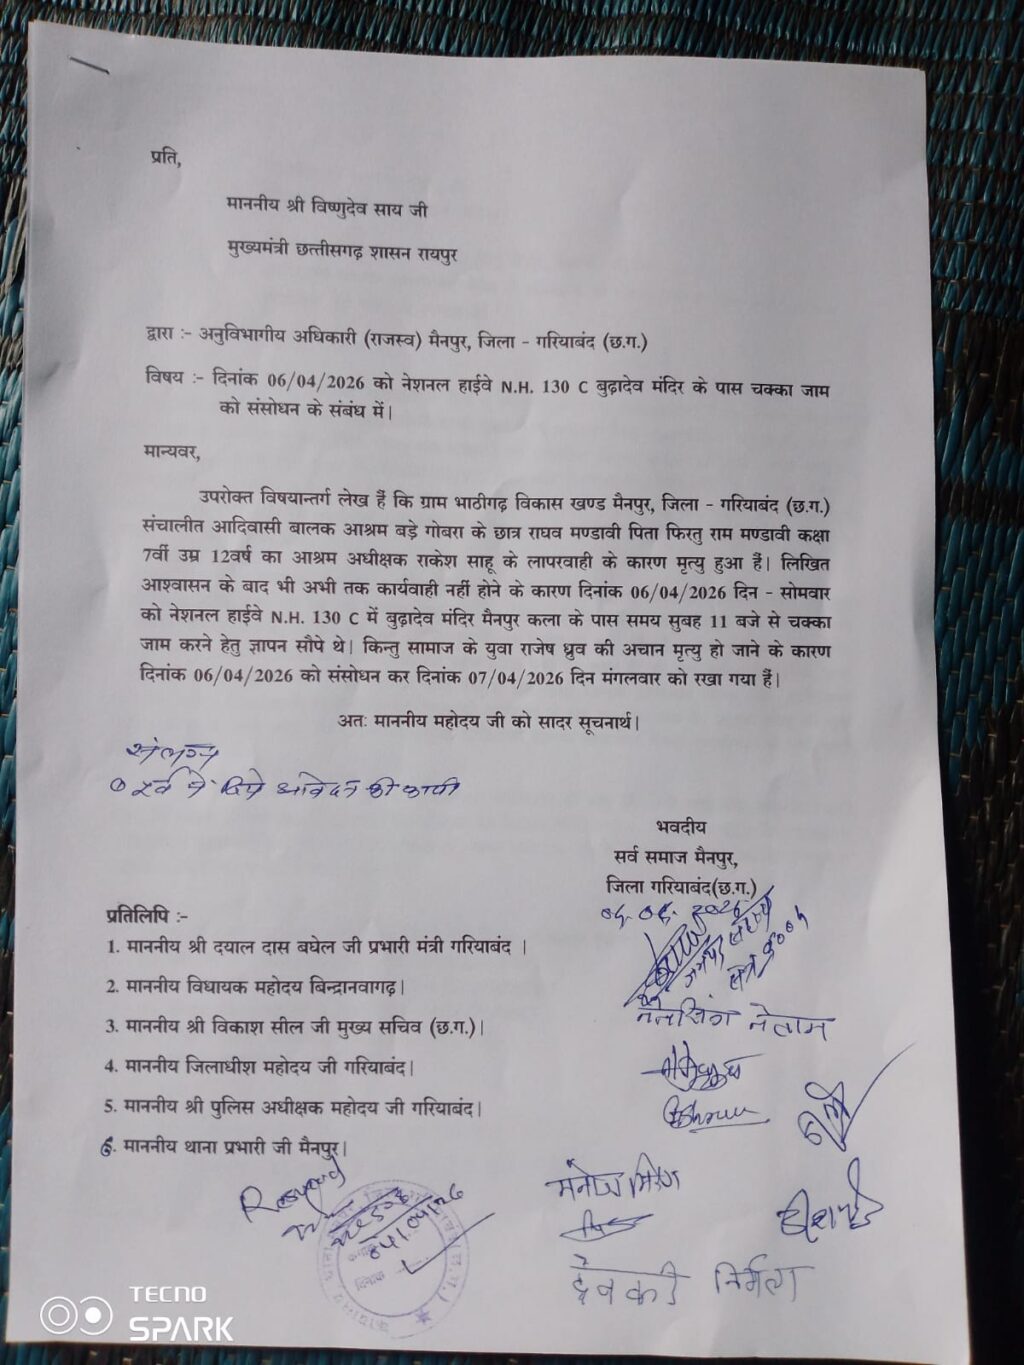 प्रति,
माननीय श्री विष्णुदेव साय जी
मुख्यमंत्री छत्तीसगढ़ शासन रायपुर
द्वारा :- अनुविभागीय अधिकारी (राजस्व) मैनपुर, जिला - गरियाबंद (छ.ग.)
विषय :- दिनांक 06/04/2026 को नेशनल हाईवे N.H. 130 C बुढ़ादेव मंदिर के पास चक्का जाम
को संसोधन के संबंध में।
मान्यवर,
उपरोक्त विषयान्तर्ग लेख हैं कि ग्राम भाठीगढ़ विकास खण्ड मैनपुर, जिला - गरियाबंद (छ.ग.)
संचालीत आदिवासी बालक आश्रम बड़े गोबरा के छात्र राघव मण्डावी पिता फिरतु राम मण्डावी कक्षा
7वीं उम्र 12वर्ष का आश्रम अधीक्षक राकेश साहू के लापरवाही के कारण मृत्यु हुआ हैं। लिखित
आश्वासन के बाद भी अभी तक कार्यवाही नहीं होने के कारण दिनांक 06/04/2026 दिन - सोमवार
को नेशनल हाईवे N.H. 130 C में बुढ़ादेव मंदिर मैनपुर कला के पास समय सुबह 11 बजे से चक्का
जाम करने हेतु ज्ञापन सौपे थे। किन्तु सामाज के युवा राजेष ध्रुव की अचान मृत्यु हो जाने के कारण
दिनांक 06/04/2026 को संसोधन कर दिनांक 07/04/2026 दिन मंगलवार को रखा गया हैं।
अतः माननीय महोदय जी को सादर सूचनार्थ।
संलग्न
दिये आवेदन की कापी
भवदीय
सर्व समाज मैनपुर,
जिला गरियाबंद(छ.ग.)
प्रतिलिपि :-
1. माननीय श्री दयाल दास बघेल जी प्रभारी मंत्री गरियाबंद ।
2. माननीय विधायक महोदय बिन्द्रानवागढ़।
3. माननीय श्री विकाश सील जी मुख्य सचिव (छ.ग.)।
4. माननीय जिलाधीश महोदय जी गरियाबंद।
5. माननीय श्री पुलिस अधीक्षक महोदय जी गरियाबंद।
6. माननीय थाना प्रभारी जी मैनपुर।
नेताम
मनोज मिश्रा
देवकी निर्मला
TECNO
SPARK